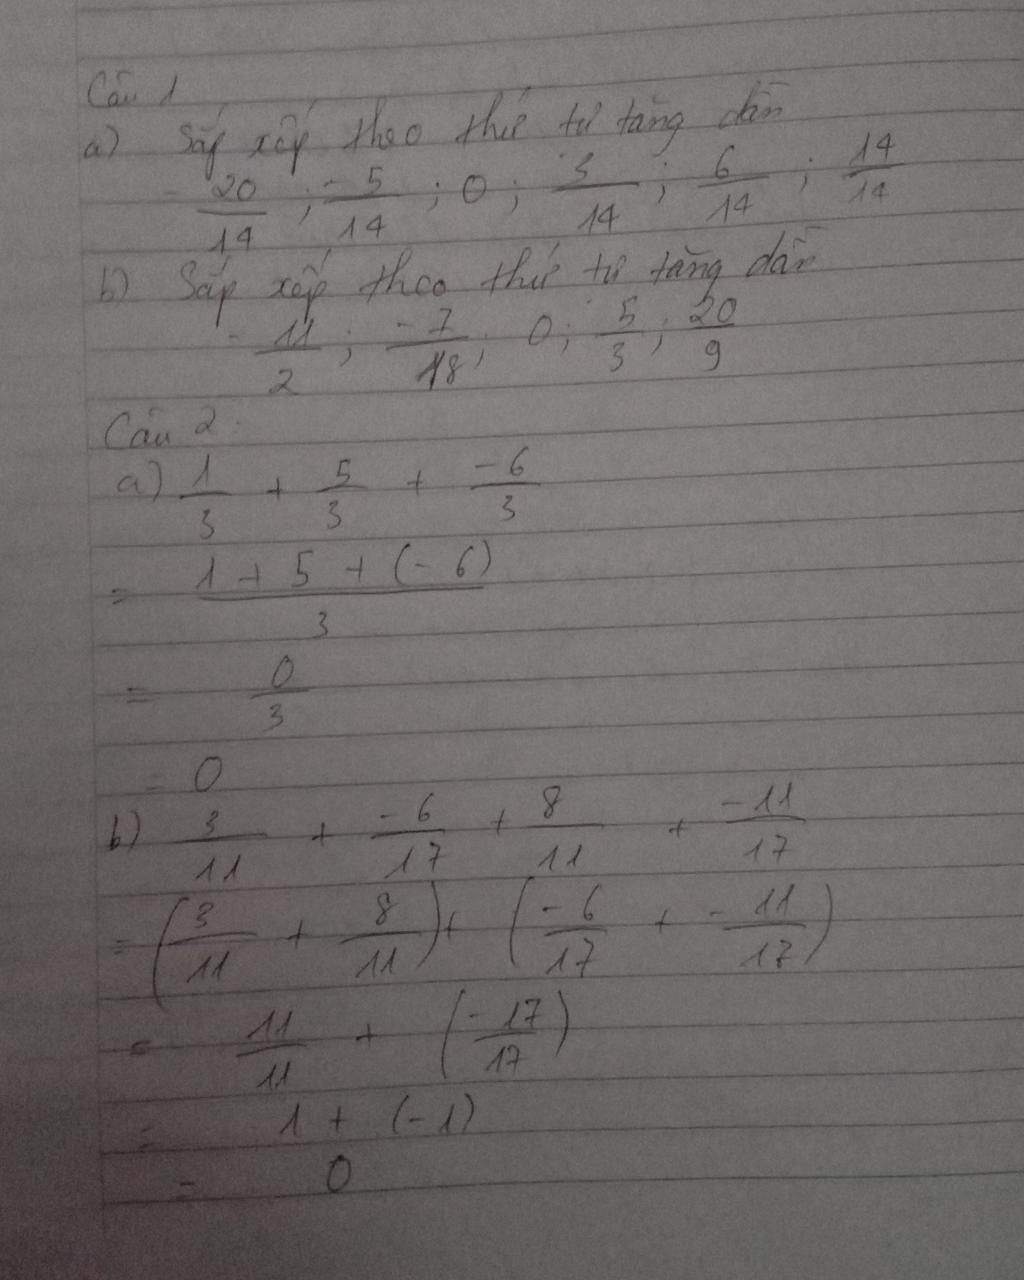 Câu 1
a) Sắp xếp theo thứ tự tăng dần
-20/14 ; -5/14 ; 0 ; 3/14 ; 6/14 ; 14/14
b) Sắp xếp theo thứ tự tăng dần
-11/2 ; -7/18 ; 0 ; 5/3 ; 20/9
Câu 2:
a) 1/3 + 5/3 + -6/3
= 1 + 5 + (-6)/3
= 0/3
= 0
b) 3/11 + -6/17 + 8/11 + -11/17
= (3/11 + 8/11) + (-6/17 + -11/17)
= 11/11 + (-17/17)
= 1 + (-1)
= 0